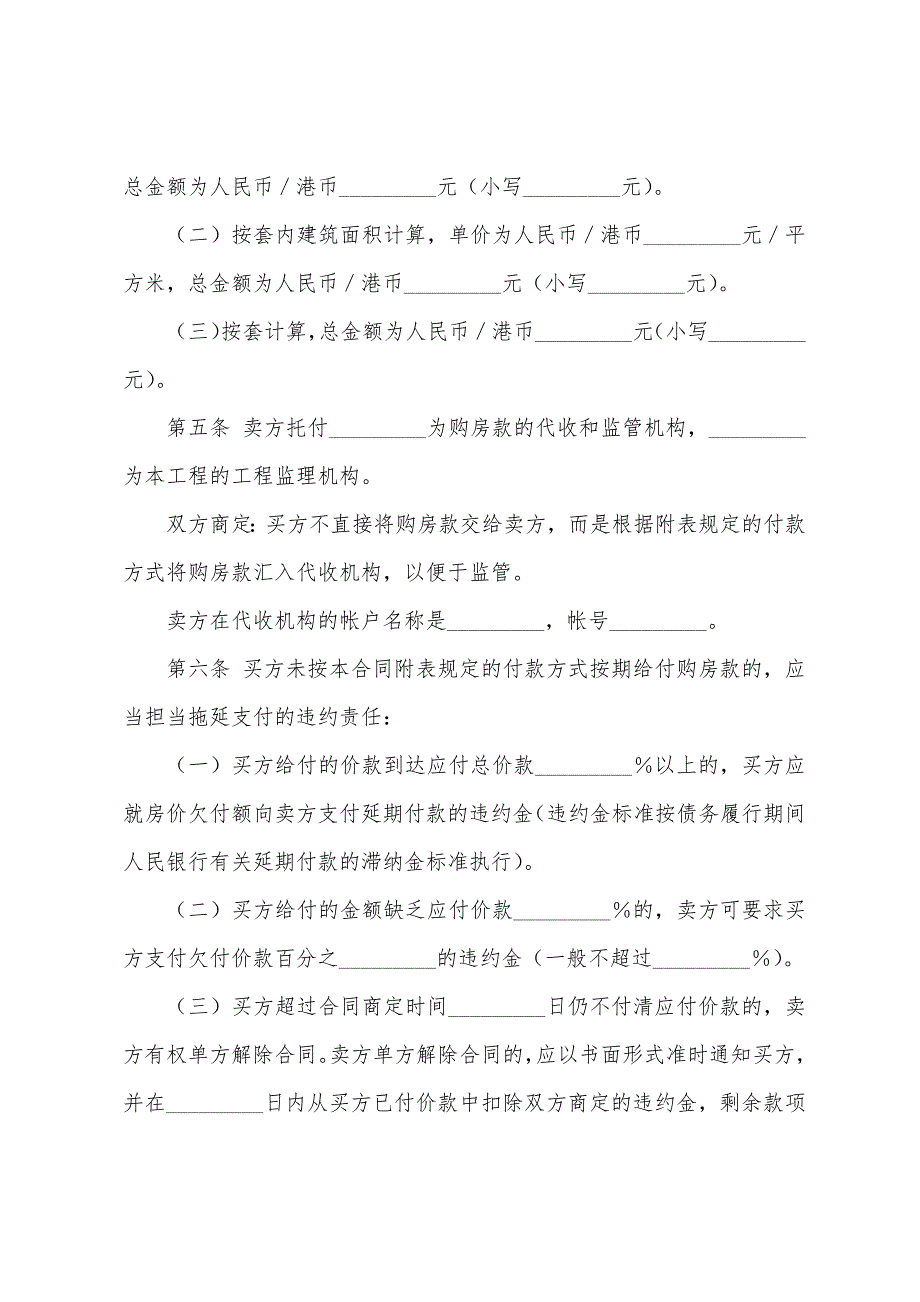 总金额为人民币／港币_________元（小写_________元）。
（二）按套内建筑面积计算，单价为人民币／港币_________元／平
方米，总金额为人民币／港币_________元（小写_________元）。
（三）按套计算，总金额为人民币／港币_________元（小写_________
元）。
第五条 卖方托付_________为购房款的代收和监管机构，_________
为本工程的工程监理机构。
双方商定：买方不直接将购房款交给卖方，而是根据附表规定的付款
方式将购房款汇入代收机构，以便于监管。
卖方在代收机构的帐户名称是_________，帐号_________。
第六条 买方未按本合同附表规定的付款方式按期给付购房款的，应
当担当拖延支付的违约责任：
（一）买方给付的价款到达应付总价款_________％以上的，买方应
就房价欠付额向卖方支付延期付款的违约金（违约金标准按债务履行期间
人民银行有关延期付款的滞纳金标准执行）。
（二）买方给付的金额缺乏应付价款_________％的，卖方可要求买
方支付欠付价款百分之_________的违约金（一般不超过_________％）。
（三）买方超过合同商定时间_________日仍不付清应付价款的，卖
方有权单方解除合同。卖方单方解除合同的，应以书面形式准时通知买方，
并在_________日内从买方已付价款中扣除双方商定的违约金，剩余款项